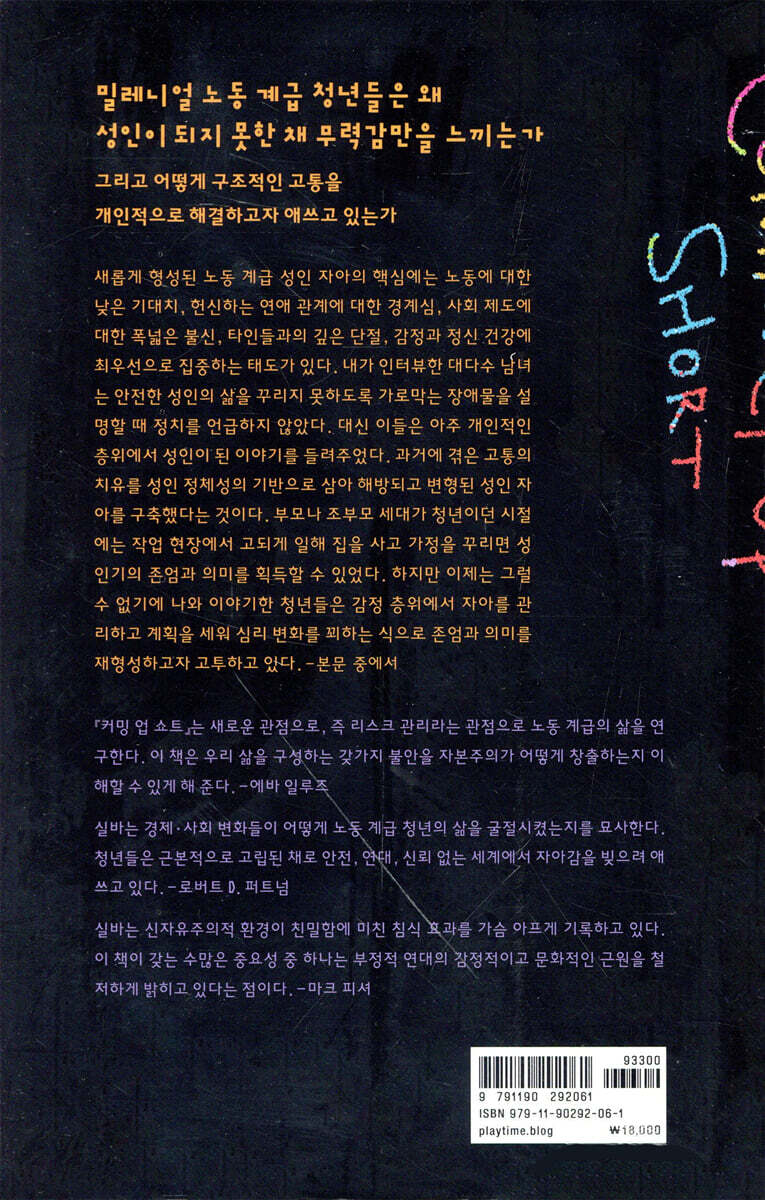 밀레니얼 노동 계급 청년들은 왜
성인이 되지 못한 채 무력감만을 느끼는가
그리고 어떻게 구조적인 고통을
개인적으로 해결하고자 애쓰고 있는가
새롭게 형성된 노동 계급 성인 자아의 핵심에는 노동에 대한
낮은 기대치, 헌신하는 연애 관계에 대한 경계심, 사회 제도에
대한 폭넓은 불신, 타인들과의 깊은 단절, 감정과 정신 건강에
최우선으로 집중하는 태도가 있다. 내가 인터뷰한 대다수 남녀
는 안전한 성인의 삶을 꾸리지 못하도록 가로막는 장애물을 설
명할 때 정치를 언급하지 않았다. 대신 이들은 아주 개인적인
층위에서 성인이 된 이야기를 들려주었다. 과거에 겪은 고통의
치유를 성인 정체성의 기반으로 삼아 해방되고 변형된 성인 자
아를 구축했다는 것이다. 부모나 조부모 세대가 청년이던 시절
에는 작업 현장에서 고되게 일해 집을 사고 가정을 꾸리면 성
인기의 존엄과 의미를 획득할 수 있었다. 하지만 이제는 그럴
수 없기에 나와 이야기한 청년들은 감정 층위에서 자아를 관
리하고 계획을 세워 심리 변화를 꾀하는 식으로 존엄과 의미를
재형성하고자 고투하고 있다. –본문 중에서
『커밍 업 쇼트』는 새로운 관점으로, 즉 리스크 관리라는 관점으로 노동 계급의 삶을 연
구한다. 이 책은 우리 삶을 구성하는 갖가지 불안을 자본주의가 어떻게 창출하는지 이
해할 수 있게 해 준다. –에바 일루즈
실바는 경제·사회 변화들이 어떻게 노동 계급 청년의 삶을 굴절시켰는지를 묘사한다.
청년들은 근본적으로 고립된 채로 안전, 연대, 신뢰 없는 세계에서 자아감을 빚으려 애
쓰고 있다. –로버트 D. 퍼트넘
실바는 신자유주의적 환경이 친밀함에 미친 침식 효과를 가슴 아프게 기록하고 있다.
이 책이 갖는 수많은 중요성 중 하나는 부정적 연대의 감정적이고 문화적인 근원을 철
저하게 밝히고 있다는 점이다. –마크 피셔
SHORT
93300
9 791190 292061
ISBN 979-11-90292-06-1
playtime.blog
₩18,000